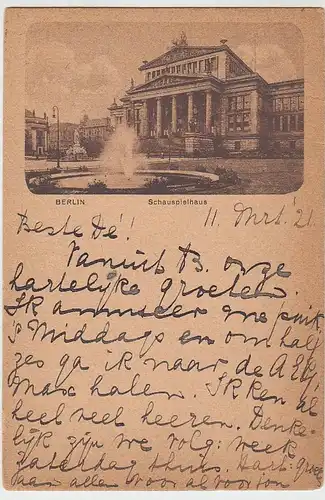 BERLIN Schauspielhaus
11 Mrt. '21
Beste Dé!
Vanuit B. onze
hartelijke groeten.
Ik amuseer me
's Middags en om half
zes ga ik naar de
Max halen. Ik ken al
heel veel heeren. Denke-
lijk zijn we volg: week
Zaterdag thuis. Hart: groet
aan allen voor al voor